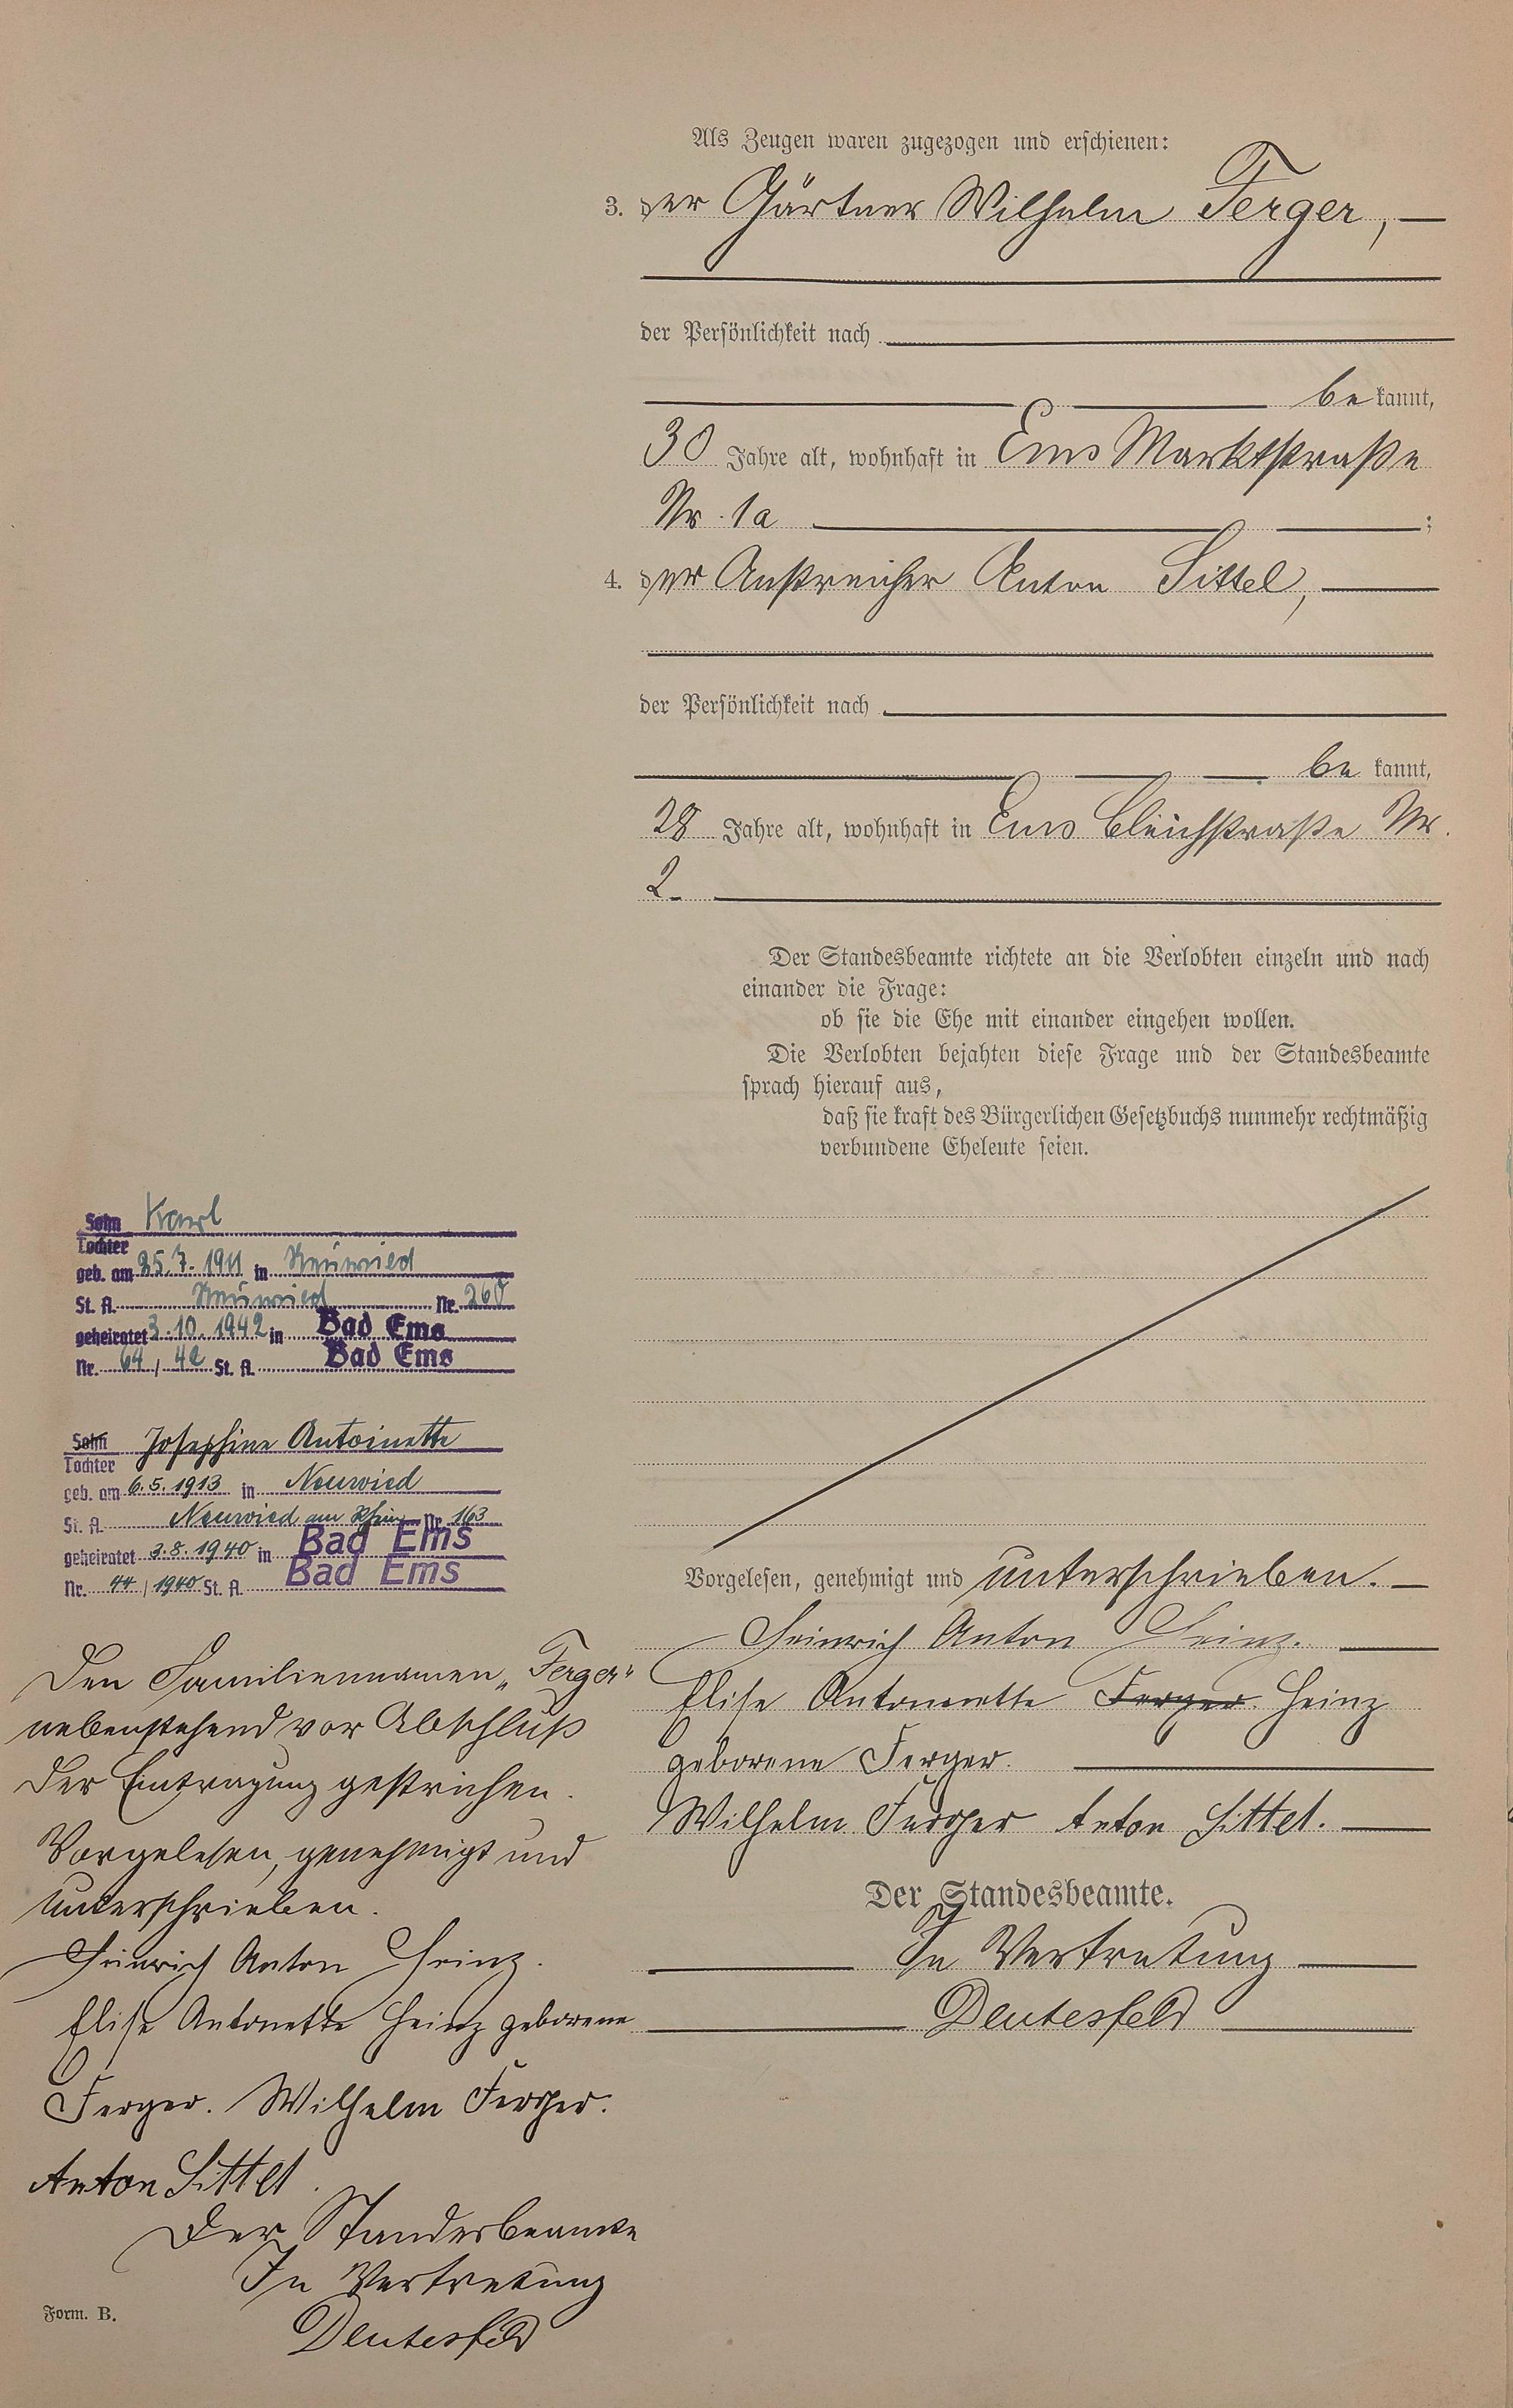 Als Zeugen waren zugezogen und erschienen:
3. der Gärtner Wilhelm Ferger,
der Persönlichkeit nach
bekannt,
30 Jahre alt, wohnhaft in Ems Marktstraße
Nr. 1a ;
4. der Anstreicher Anton Sittel,
der Persönlichkeit nach
bekannt,
28 Jahre alt, wohnhaft in Ems Bleichstraße Nr.
2.
Der Standesbeamte richtete an die Verlobten einzeln und nach
einander die Frage:
ob sie die Ehe mit einander eingehen wollen.
Die Verlobten bejahten diese Frage und der Standesbeamte
sprach hierauf aus,
daß sie kraft des Bürgerlichen Gesetzbuchs nunmehr rechtmäßig
verbundene Eheleute seien.
Vorgelesen, genehmigt und unterschrieben.
Heinrich Anton Heinz.
Elise Antonette Ferger Heinz
geborene Ferger.
Wilhelm Ferger Anton Sittel.
Der Standesbeamte.
In Vertretung
Deutesfeld
Sohn Karl
Tochter
geb. am 25.7.1911 in Neuwied
St. A. Neuwied Nr. 260
geheiratet 3.10.1942 in Bad Ems
Nr. 64 / 42 St. A. Bad Ems
Sohn Josephine Antoinette
Tochter
geb. am 6.5.1913 in Neuwied
St. A. Neuwied am Rhein Nr. 163
geheiratet 3.8.1940 in Bad Ems
Nr. 44 / 1940 St. A. Bad Ems
Den Familiennamen „Ferger"
nebenstehend vor Abschluß
der Eintragung gestrichen.
Vorgelesen, genehmigt und
unterschrieben.
Heinrich Anton Heinz.
Elise Antonette Heinz geborene
Ferger. Wilhelm Ferger.
Anton Sittel.
Der Standesbeamte
In Vertretung
Deutesfeld
Form. B.